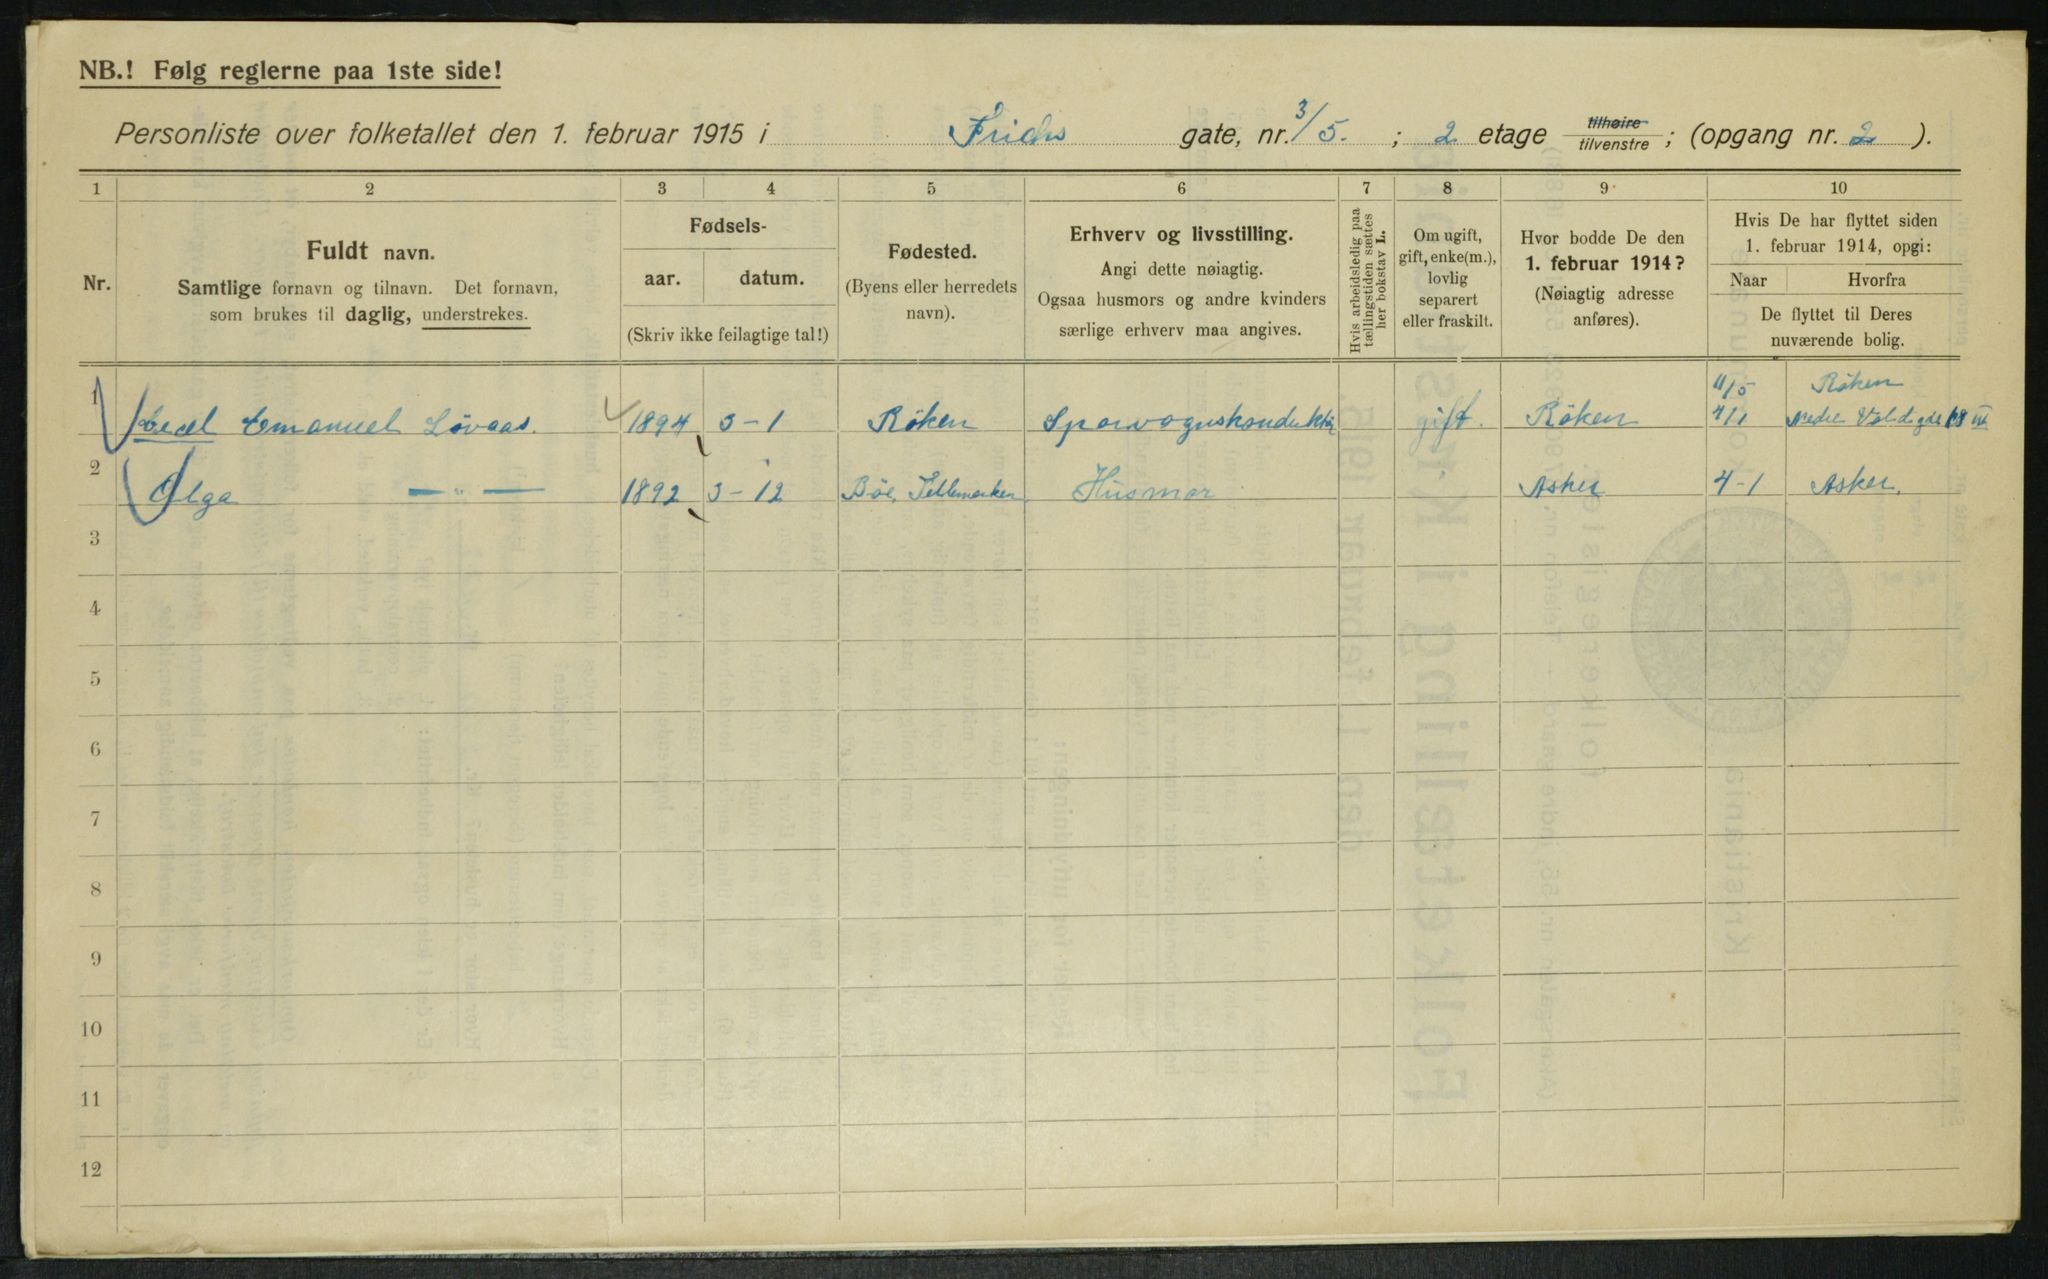 NB.! Følg reglerne paa 1ste side!
Personliste over folketallet den 1. februar 1915 i Frichs gate, nr. 3/5. ; 2 etage tilhøire/tilvenstre ; (opgang nr. 2 ).
1 2 3 4 5 6 7 8 9 10
Nr.
Fuldt navn.
Samtlige fornavn og tilnavn. Det fornavn,
som brukes til daglig, understrekes.
Fødsels-
aar. datum.
(Skriv ikke feilagtige tal!)
Fødested.
(Byens eller herredets
navn).
Erhverv og livsstilling.
Angi dette nøiagtig.
Ogsaa husmors og andre kvinders
særlige erhverv maa angives.
Hvis arbeidsledig paa
tællingstiden sættes
her bokstav L.
Om ugift,
gift, enke(m.),
lovlig
separert
eller fraskilt.
Hvor bodde De den
1. februar 1914?
(Nøiagtig adresse
anføres).
Hvis De har flyttet siden
1. februar 1914, opgi:
Naar Hvorfra
De flyttet til Deres
nuværende bolig.
11/5 Röken
1 Emanuel Lövaas. 1894 3-1 Röken Sporvognskonduktör gift. Röken 4/1
2 Olga — " — 1892 3-12 Böe, Tellemarken Husmor Asker 4-1 Asker.
3
4
5
6
7
8
9
10
11
12